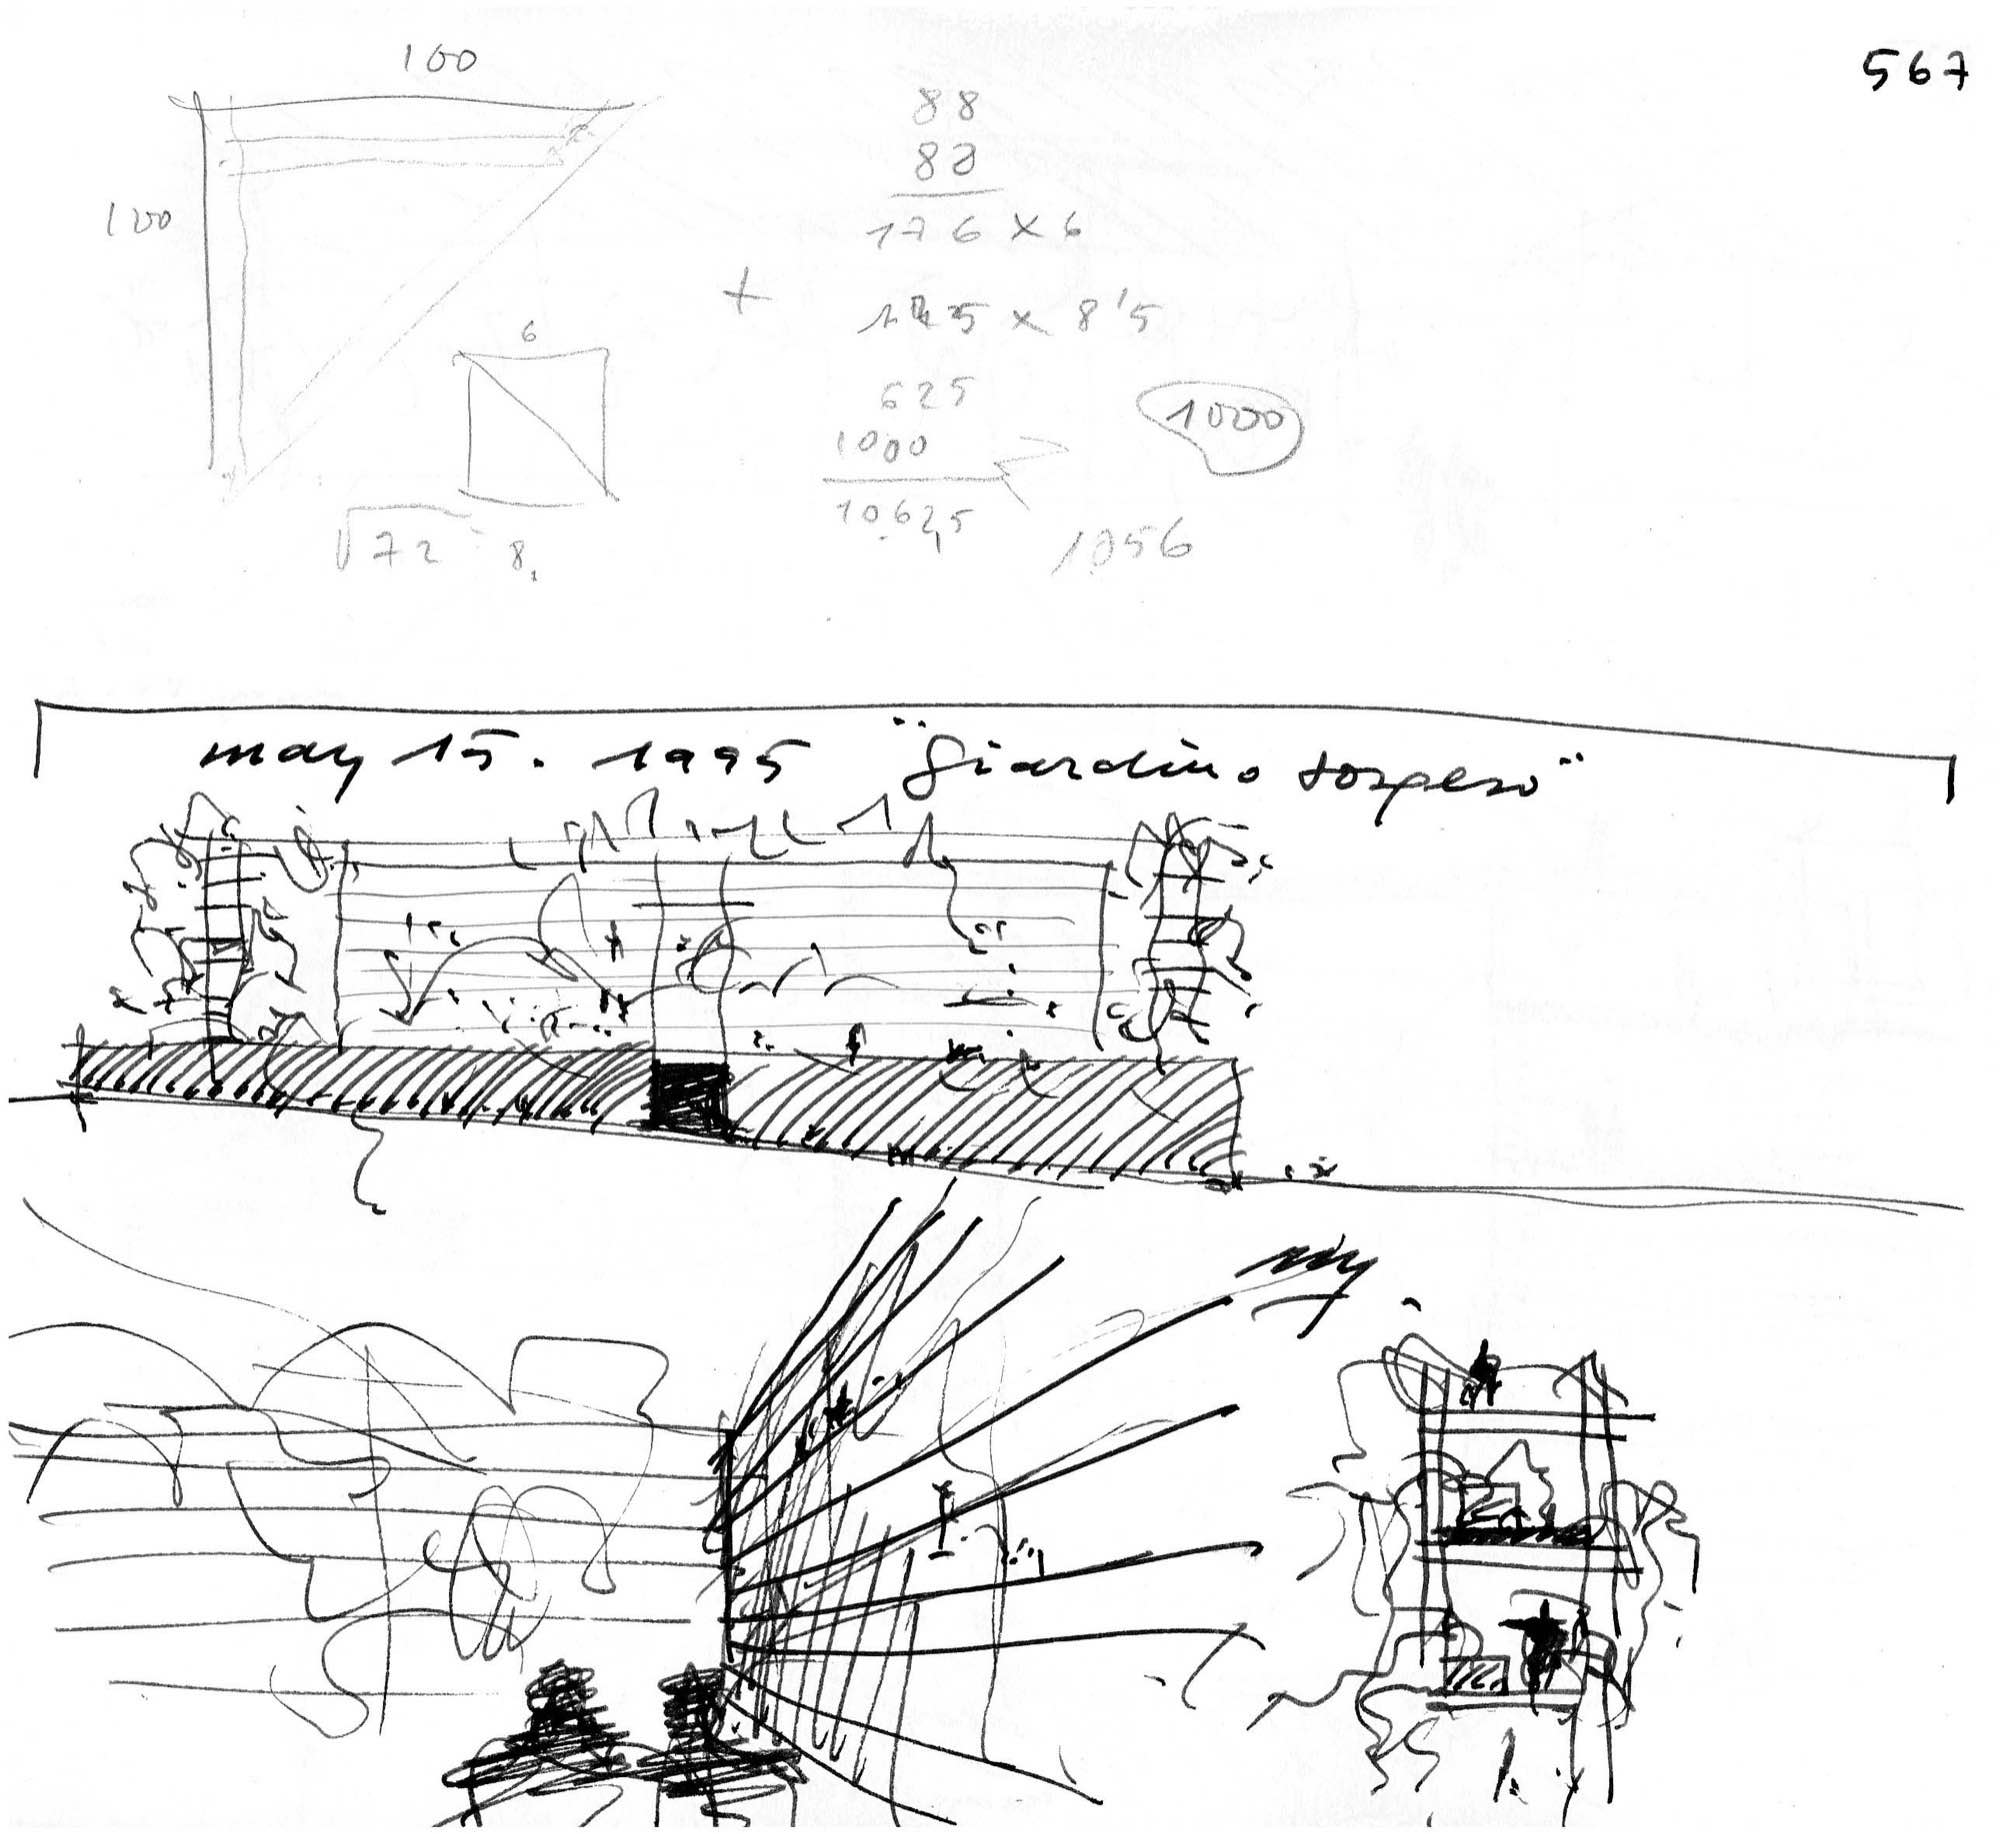 567
100
100
88
88
176 × 6
+
125 × 8'5
6
625
1000
10625
1000
√72 = 8,
1056
may 15. 1995 "Giardino sospeso"